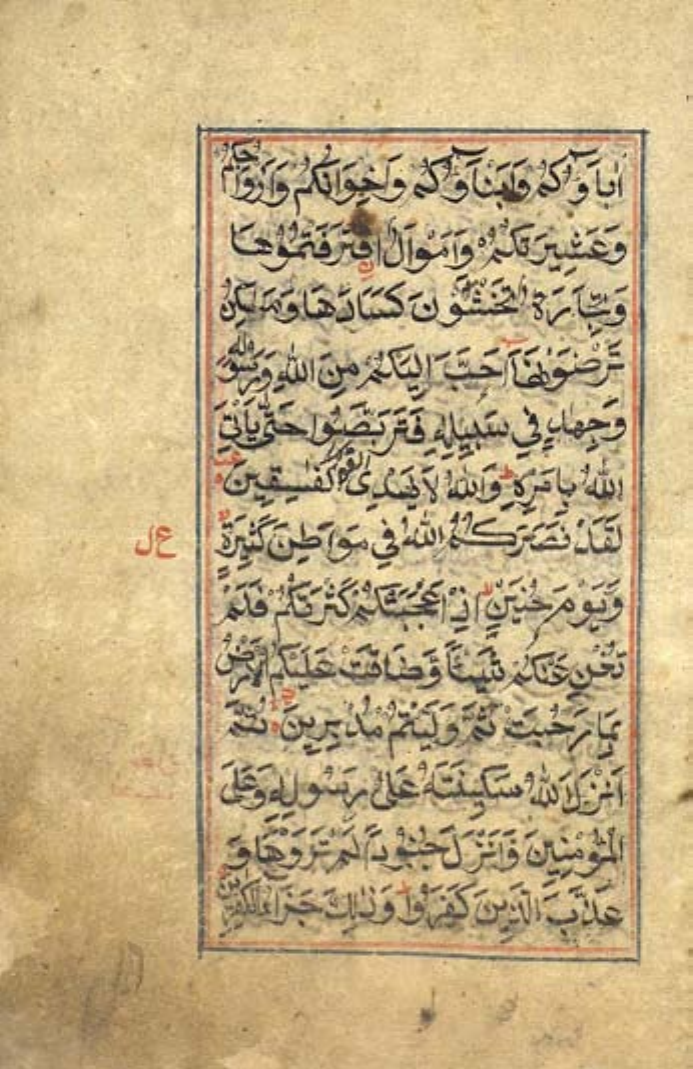 اٰبَاؤُكُمْ وَاَبْنَاؤُكُمْ وَاِخْوَانُكُمْ وَاَزْوَاجُكُمْ
وَعَشِيْرَتُكُمْ وَاَمْوَالُ ࣙاقْتَرَفْتُمُوْهَا
وَتِجَارَةٌ تَخْشَوْنَ كَسَادَهَا وَمَسٰكِنُ
تَرْضَوْنَهَا اَحَبَّ اِلَيْكُمْ مِنَ اللّٰهِ وَرَسُوْلِهٖ
وَجِهَادٍ فِيْ سَبِيْلِهٖ فَتَرَبَّصُوْا حَتّٰى يَاْتِيَ
اللّٰهُ بِاَمْرِهٖ وَاللّٰهُ لَا يَهْدِى الْقَوْمَ الْفٰسِقِيْنَ
لَقَدْ نَصَرَكُمُ اللّٰهُ فِيْ مَوَاطِنَ كَثِيْرَةٍ
وَيَوْمَ حُنَيْنٍ اِذْ اَعْجَبَتْكُمْ كَثْرَتُكُمْ فَلَمْ
تُغْنِ عَنْكُمْ شَيْئًا وَضَاقَتْ عَلَيْكُمُ الْاَرْضُ
بِمَا رَحُبَتْ ثُمَّ وَلَّيْتُمْ مُدْبِرِيْنَ ثُمَّ
اَنْزَلَ اللّٰهُ سَكِيْنَتَهٗ عَلٰى رَسُوْلِهٖ وَعَلَى
الْمُؤْمِنِيْنَ وَاَنْزَلَ جُنُوْدًا لَمْ تَرَوْهَا وَ
عَذَّبَ الَّذِيْنَ كَفَرُوْا وَذٰلِكَ جَزَاءُ الْكٰفِرِيْنَ